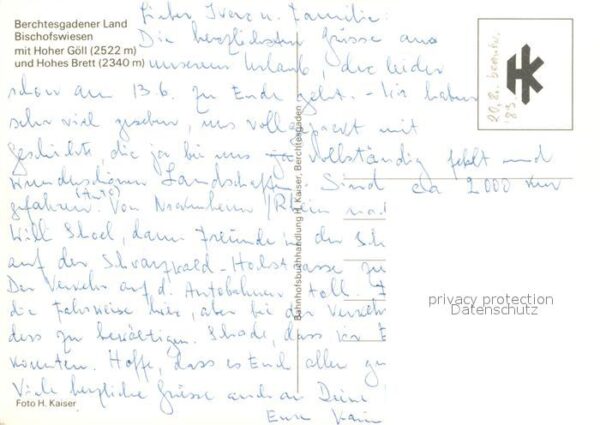 Berchtesgadener Land
Bischofswiesen
mit Hoher Göll (2522 m)
und Hohes Brett (2340 m)
Lieber Ivar u. Familie!
Die herzlichsten Grüsse aus
unserem Urlaub, der leider
schon am 13.6. zu Ende geht. - Wir haben
sehr viel gesehen, uns vollgepackt mit
Geschichte, die ja bei uns vollständig fehlt und
wunderschönen Landschaften. Sind ca 2000 km
(Auto)
gefahren. Von Nackenheim / Rhein nach
dann Freunde in der
auf der Schwarzwald-Hochstrasse zu
Der Verkehr auf d. Autobahnen toll.
die Fahrweise hier, aber bei der Verkehrs
dess zu bewältigen. Schade, dass wir
konnten. Hoffe, dass es Euch allen gu
Viele herzliche Grüsse auch an Deine
Eure Karin
Foto H. Kaiser
Bahnhofsbuchhandlung H. Kaiser, Berchtesgaden
HK
20.8.
'83
privacy protection
Datenschutz